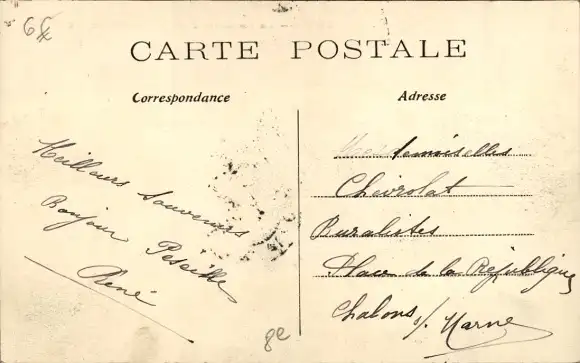 6f
CARTE POSTALE
Correspondance
Adresse
Meilleurs Souvenirs
Bonjour
René
Mesdemoiselles
Chevrolat
Buralistes
Place de la République
Chalons s/ Marne
ge